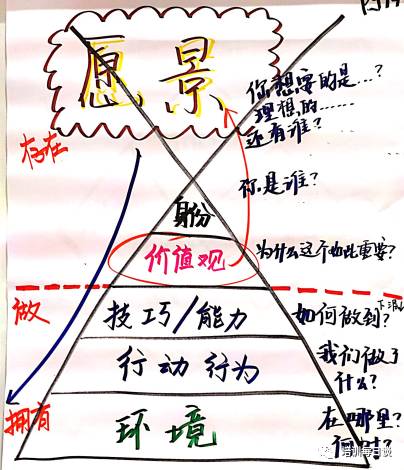 愿景
你想要的是...?
理想的......
还有谁?
存在
你是谁?
身份
价值观
为什么这个如此重要?
做
技巧/能力
如何做到?
行动 行为
我们做了
什么?
拥有
环境
在哪里?
何时?
培训每日谈